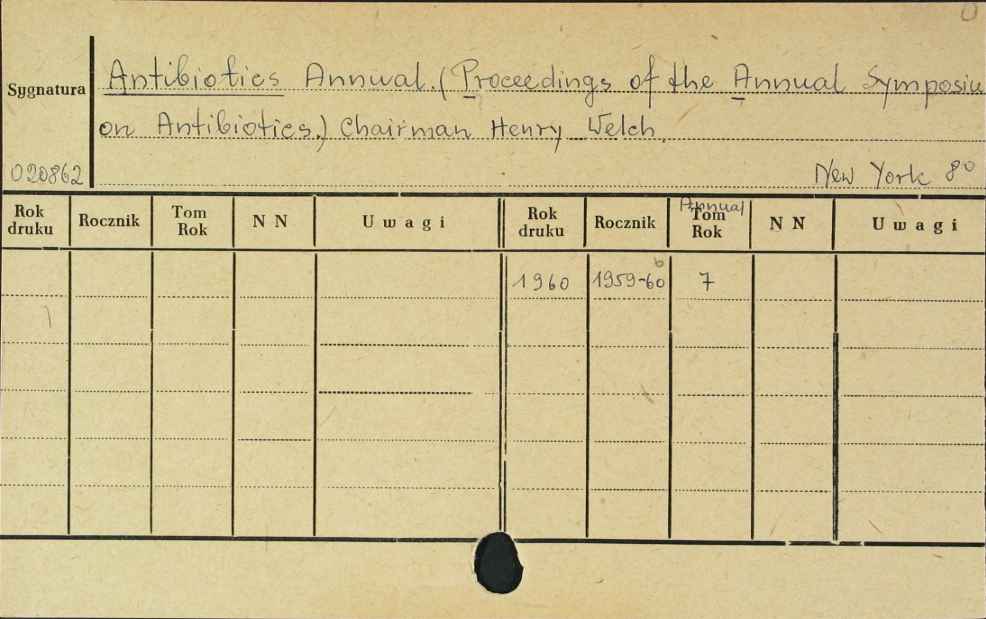 Sygnatura
Antibiotics Annual. (Proceedings of the Annual Symposiu
on Antibiotics.) Chairman Henry Welch.
020862
New York 8o
Rok druku Rocznik Tom Rok N N Uwagi Rok druku Rocznik Annual Tom Rok N N Uwagi
1960 1959-60 7